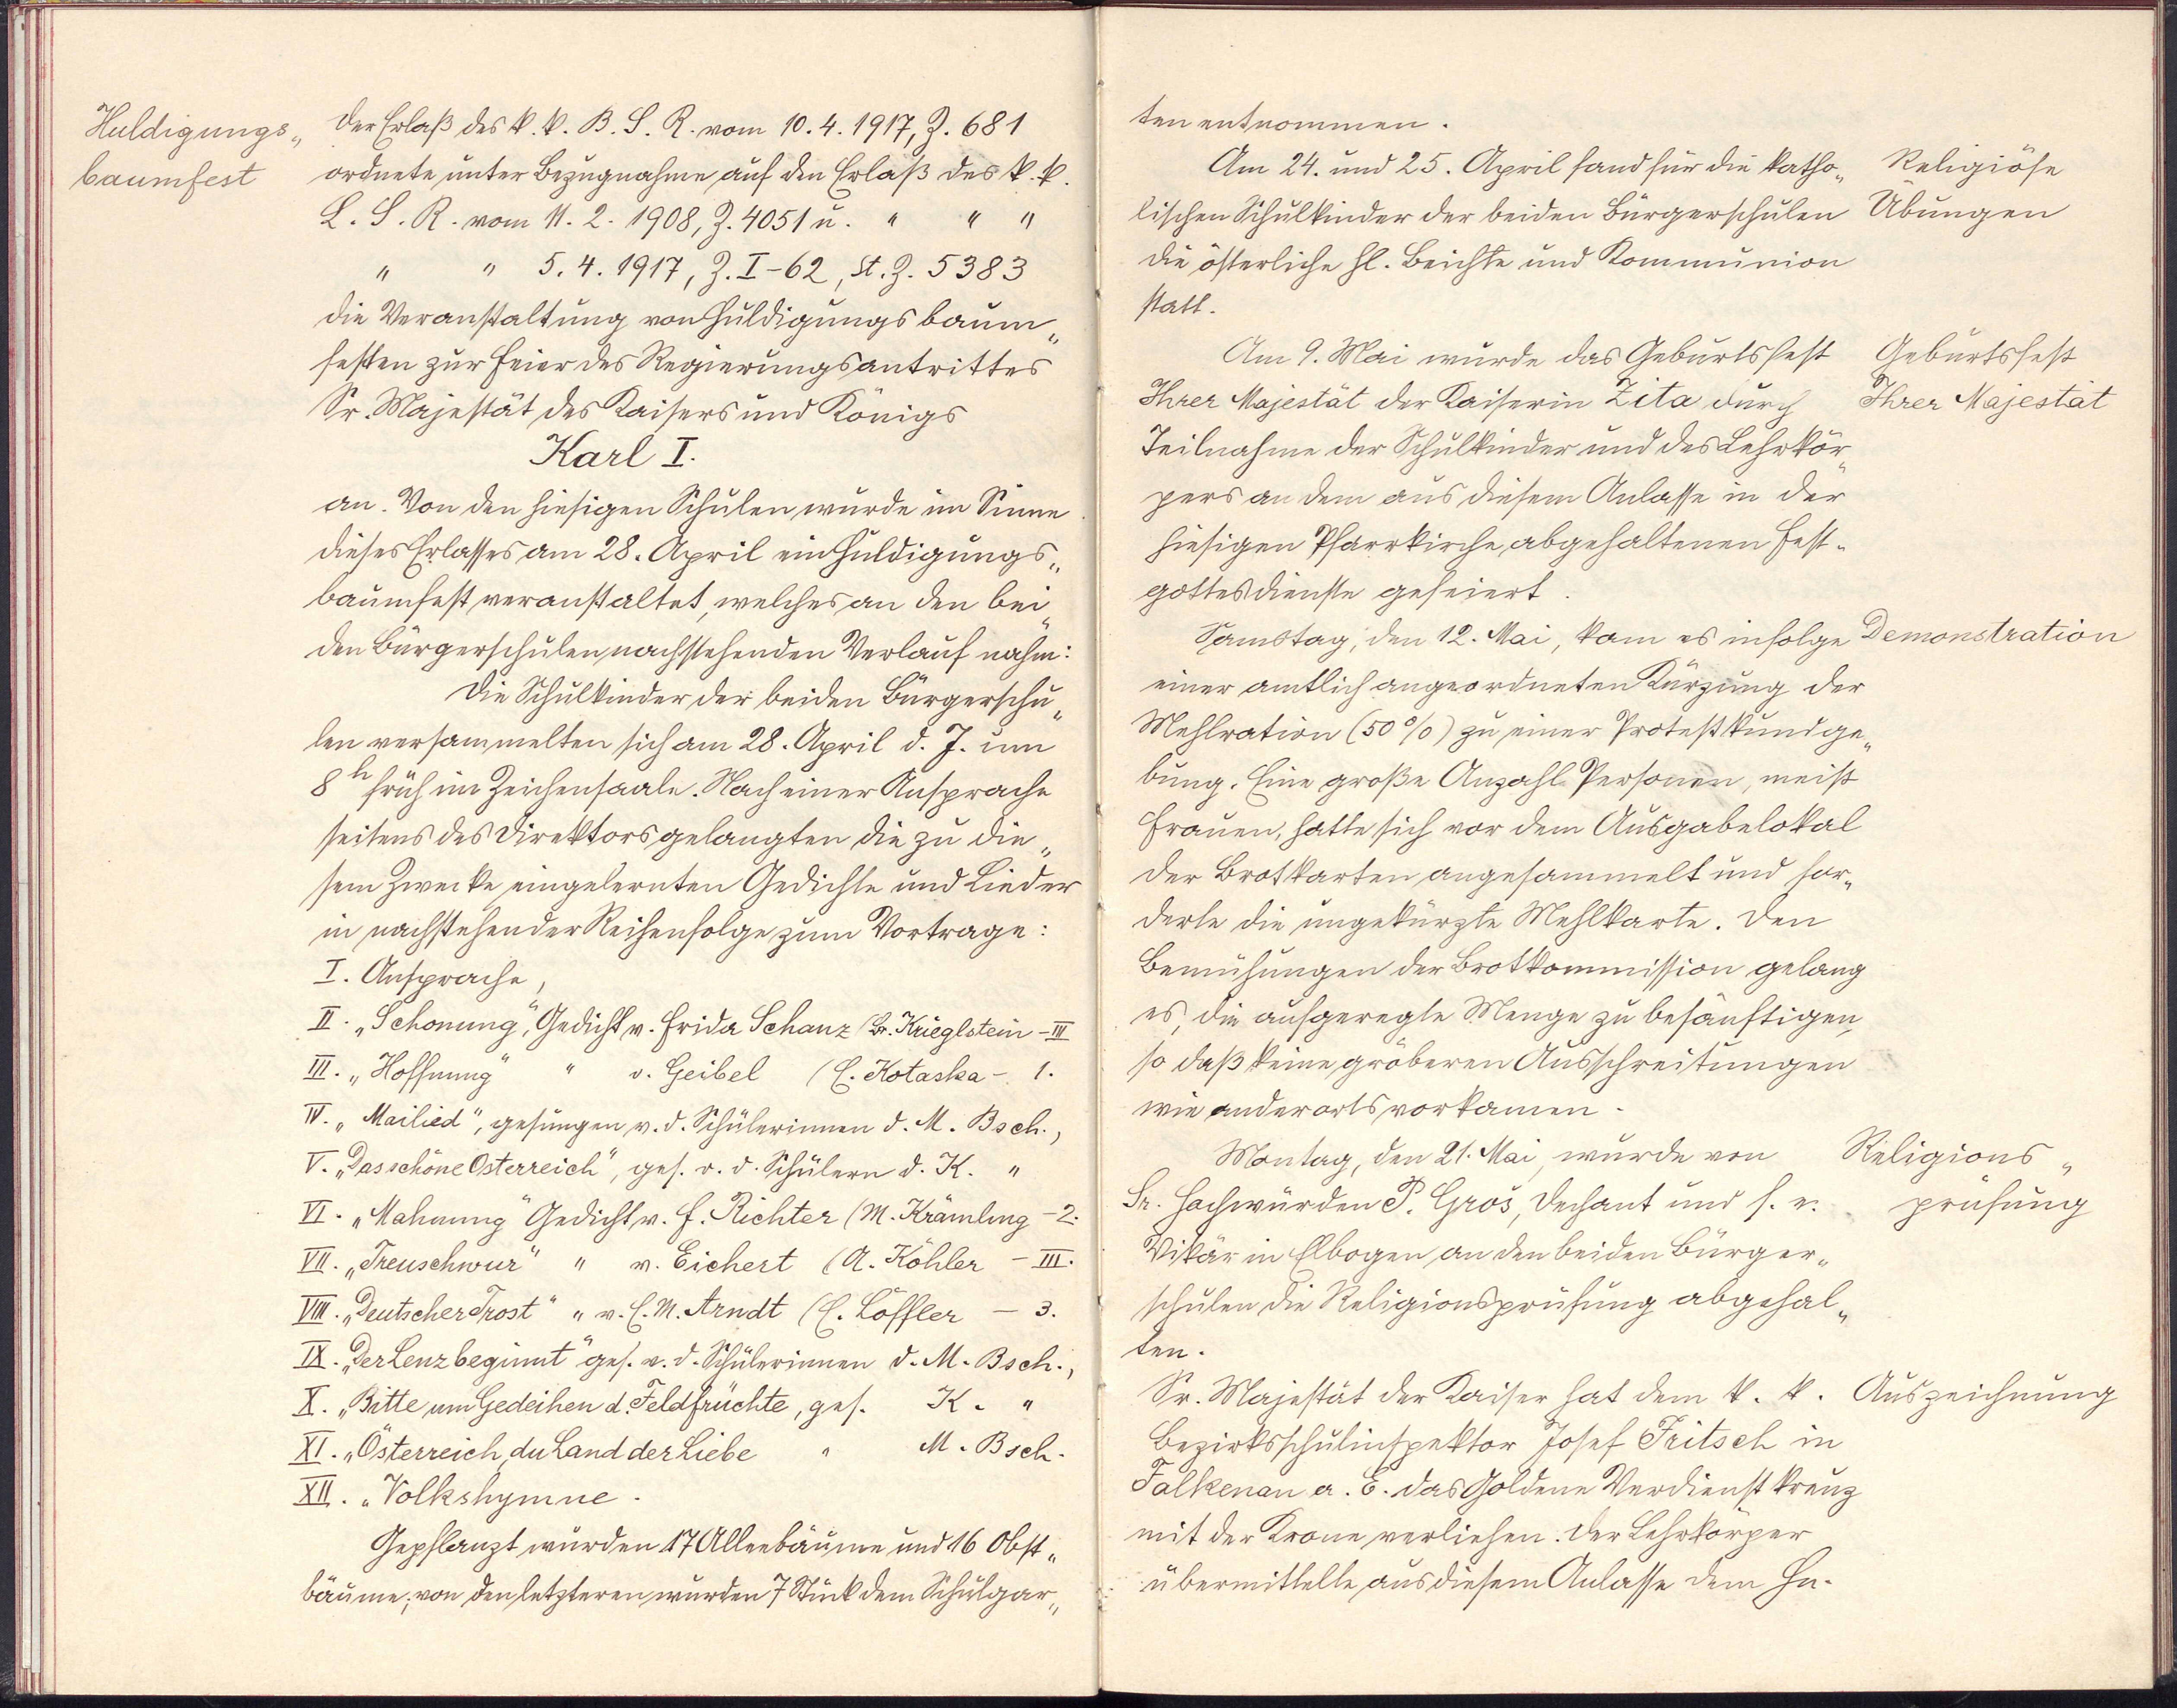 Huldigungs„
baumfest
Der Erlaß des k. k. B. S. R. vom 10. 4. 1917, Z. 681
ordnete unter Bezugnahme auf den Erlaß des k. k.
L. S. R. vom 11. 2. 1908, Z. 4051 u. " " "
" " 5. 4. 1917, Z. I-62, St. Z. 5383
die Veranstaltung von Huldigungsbaum„
festen zur Feier des Regierungsantrittes
Sr. Majestät des Kaisers und Königs
Karl I.
an. Von den hiesigen Schulen wurde im Sinne
dieses Erlasses am 28. April ein Huldigungs„
baumfest veranstaltet, welches an den bei„
den Bürgerschulen nachstehenden Verlauf nahm:
Die Schulkinder der beiden Bürgerschu„
len versammelten sich am 28. April d. J. um
8h früh im Zeichensaale. Nach einer Ansprache
seitens des Direktors gelangten die zu die„
sem Zwecke eingelernten Gedichte und Lieder
in nachstehender Reihenfolge zum Vortrage:
I. Ansprache,
II. „Schonung", Gedicht v. Frida Schanz (Br. Krieglstein - III
III. „Hoffnung" " v. Geibel (E. Kotaska - 1.
IV. „Mailied", gesungen v. d. Schülerinnen d. M. Bsch.,
V. „Das schöne Österreich", ges. v. d. Schülern d. K. "
VI. „Mahnung" Gedicht v. F. Richter (M. Krämling - 2.
VII. „Treuschwur" " v. Eichert (A. Köhler - III.
VIII. „Deutscher Trost" " v. E. M. Arndt (E. Löffler - 3.
IX. „Der Lenz beginnt" ges. v. d. Schülerinnen d. M. Bsch.,
X. „Bitte um Gedeihen d. Feldfrüchte, ges. K. "
XI. „Österreich, du Land der Liebe " M. Bsch.
XII. „Volkshymne.
Gepflanzt wurden 17 Alleebäume und 16 Obst„
bäume; von den letzteren wurden 7 Stück dem Schulgar„
ten entnommen.
Am 24. und 25. April fand für die katho„
lischen Schulkinder der beiden Bürgerschulen
die österliche hl. Beichte und Kommunion
statt.
Religiöse
Übungen
Am 9. Mai wurde das Geburtsfest
Ihrer Majestät der Kaiserin Zita durch
Teilnahme der Schulkinder und des Lehrkör„
pers an dem aus diesem Anlasse in der
hiesigen Pfarrkirche abgehaltenen Fest-
gottesdienste gefeiert.
Geburtsfest
Ihrer Majestät
Samstag, den 12. Mai, kam es infolge
einer amtlich angeordneten Kürzung der
Mehlration (50%) zu einer Protestkundge„
bung. Eine große Anzahl Personen, meist
Frauen, hatte sich vor dem Ausgabelokal
der Brotkarten angesammelt und for„
derte die ungekürzte Mehlkarte. Den
Bemühungen der Brotkommission gelang
es, die aufgeregte Menge zu besänftigen,
so daß keine gröberen Ausschreitungen
wie anderorts vorkamen.
Demonstration
Montag, den 21. Mai, wurde von
Sr. Hochwürden P. Groš, Dechant und f. e.
Vikär in Elbogen an den beiden Bürger„
schulen die Religionsprüfung abgehal„
ten.
Religions„
prüfung
Sr. Majestät der Kaiser hat dem k. k.
Bezirksschulinspektor Josef Fritsch in
Falkenau a. E. das Goldene Verdienstkreuz
mit der Krone verliehen. Der Lehrkörper
übermittelte aus diesem Anlasse dem Hn.
Auszeichnung